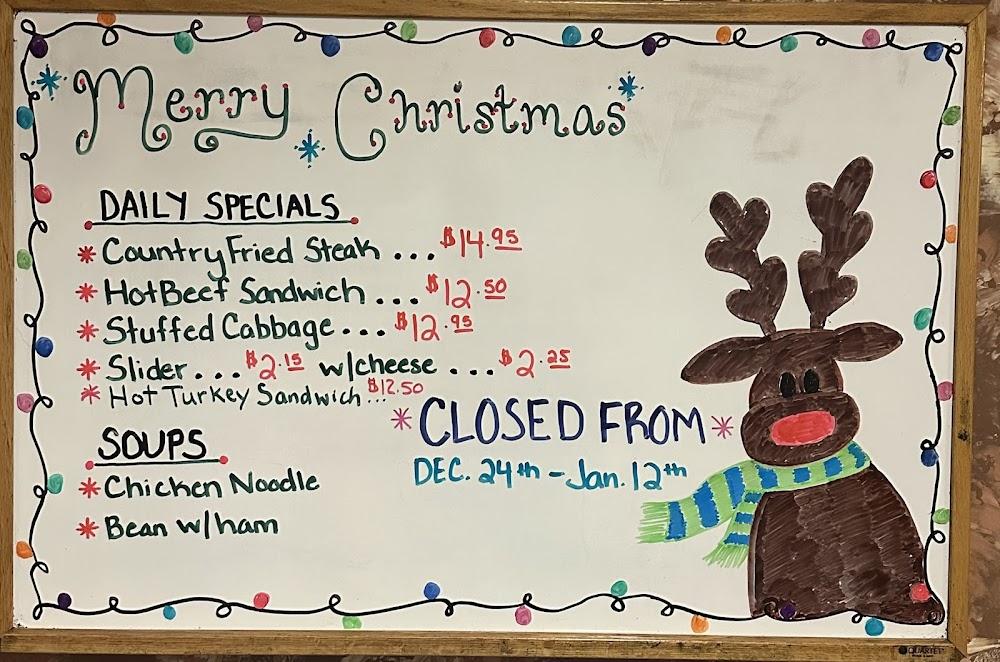 Merry Christmas
DAILY SPECIALS
* Country Fried Steak ... $14.95
* Hot Beef Sandwich ... $12.50
* Stuffed Cabbage ... $12.95
* Slider ... $2.15 w/cheese ... $2.25
* Hot Turkey Sandwich ... $12.50
* CLOSED FROM *
DEC. 24th - Jan. 12th
SOUPS
* Chicken Noodle
* Bean w/ham
QUARTET